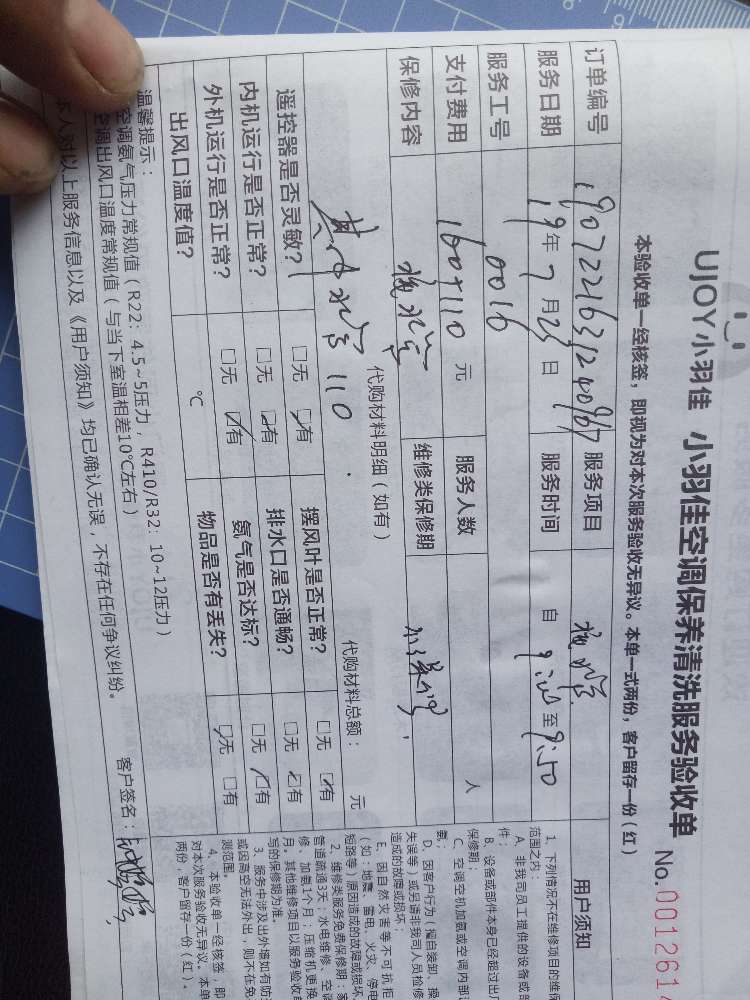 UJOY小羽佳 小羽佳空调保养清洗服务验收单
No.001261
本验收单一经核签，即视为对本次服务验收无异议。本单一式两份，客户留存一份(红)
订单编号 服务项目
服务日期 19年7月25日 服务时间 自 至9:50
服务工号 0016
支付费用 160+110 元 服务人数 人
保修内容 维修类保修期
代购材料明细（如有） 代购材料总额： 元
110
遥控器是否灵敏？ □无 □有 摆风叶是否正常？ □无 □有
内机运行是否正常？ □无 □有 排水口是否通畅？ □无 □有
外机运行是否正常？ □无 □有 氨气是否达标？ □无 □有
出风口温度值？ ℃ 物品是否有丢失？ □无 □有
温馨提示：
空调氨气压力常规值（R22：4.5~5压力，R410/R32：10~12压力）
空调出风口温度常规值（与当下室温相差10℃左右）
人对以上服务信息以及《用户须知》均已确认无误，不存在任何争议纠纷。
客户签名：
用户须知
1、下列情况不在维修项目的维保
范围之内：
A、非我司员工提供的设备或部
件；
B、设备或部件本身已经超过出厂
保修期；
C、空调空机加氨或空调内部
D、因客户行为（擅自装卸、操
失误等）或另请非我司人员检修
造成的故障或损坏；
E、因自然灾害等不可抗拒
（如：地震、雷电、火灾、停电
短路等）原因造成的故障或损坏
2、维修类服务免费保修期：
管道疏通3天；水电维修、空调
修、加氨1个月；压缩机更换
月。其他维修项目以服务验收
写的保修期为准。
3、服务中涉及出外墙如有防
或因高空无法外出，则不在免
测范围。
4、本验收单一经核签，即
对本次服务验收无异议。本单
两份，客户留存一份(红)。